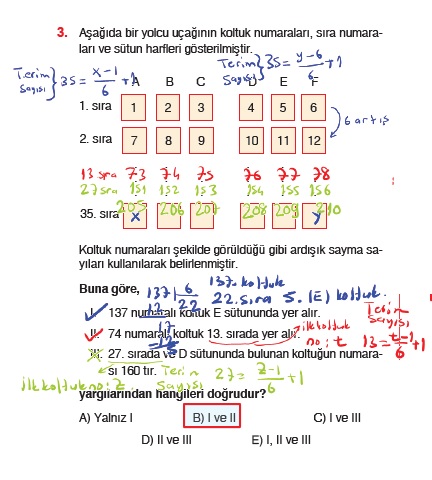 3. Aşağıda bir yolcu uçağının koltuk numaraları, sıra numara-
ları ve sütun harfleri gösterilmiştir.
Terim sayısı } 35 = x-1/6 +1
Terim sayısı } 35 = y-6/6 +1
A B C D E F
1. sıra 1 2 3 4 5 6
6 artış
2. sıra 7 8 9 10 11 12
13 sıra 73 74 75 76 77 78
27 sıra 151 152 153 154 155 156
205 206 207 208 209 210
35. sıra x y
Koltuk numaraları şekilde görüldüğü gibi ardışık sayma sa-
yıları kullanılarak belirlenmiştir.
Buna göre,
137 | 6
12 22
17
12
5
137. koltuk
22. sıra 5. (E) koltuk
I. 137 numaralı koltuk E sütununda yer alır.
II. 74 numaralı koltuk 13. sırada yer alır.
ilk koltuk no: t
Terim sayısı
13 = t-1/6 +1
III. 27. sırada ve D sütununda bulunan koltuğun numara-
sı 160 tır.
ilk koltuk no: z
Terim sayısı 27 = z-1/6 +1
yargılarından hangileri doğrudur?
A) Yalnız I B) I ve II C) I ve III
D) II ve III E) I, II ve III